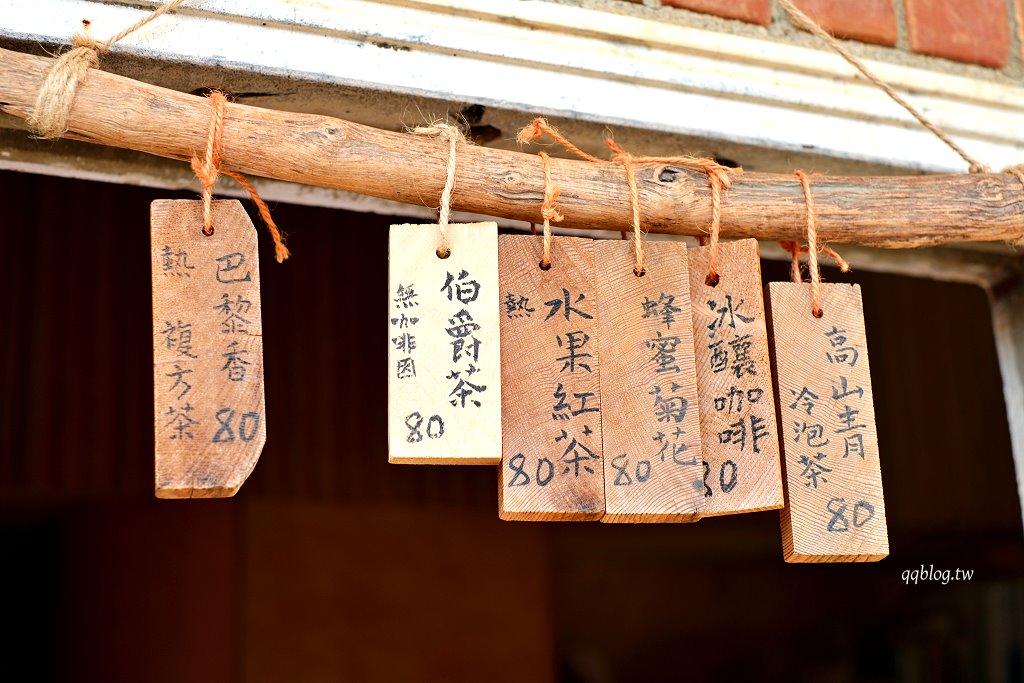 巴黎香
熱 複方茶
80
伯爵茶
無咖啡因
80
水果紅茶
熱
80
蜂蜜菊花
80
冰釀咖啡
80
高山青
冷泡茶
80
qqblog.tw